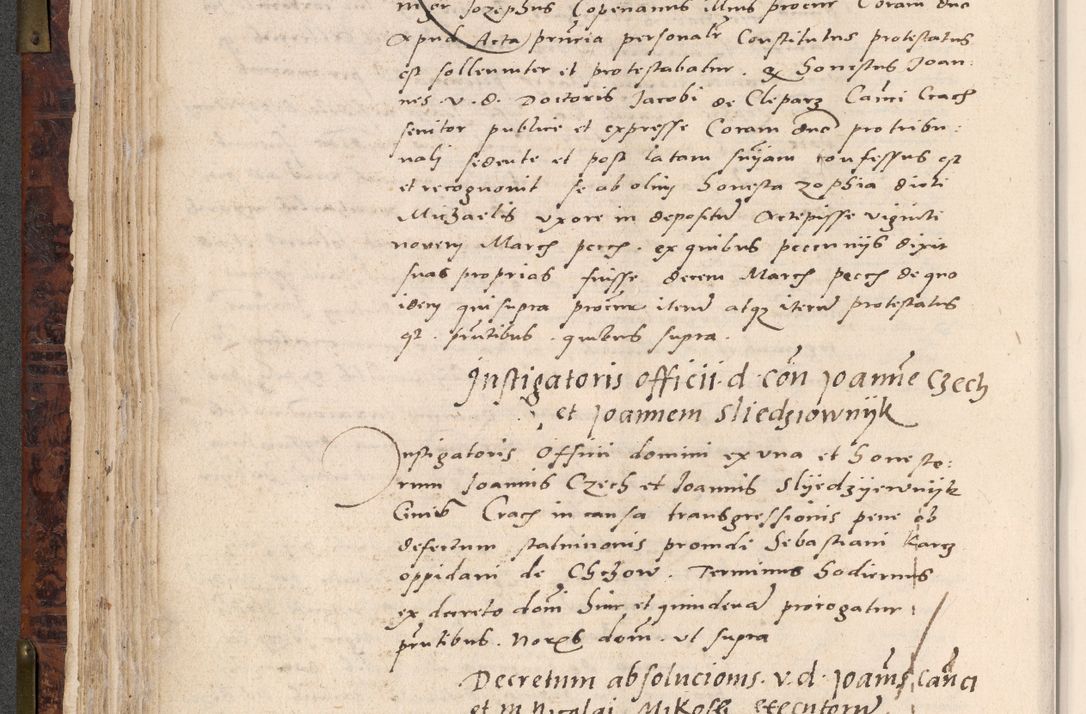 niger Jozephus Copenanus illius procur Coram dno
Apud Acta pñcia personalr Constitutus protestatus
est sollenniter et protestabatur. Honestus Joan:
nes. v. d. Doctoris Jacobi de Cleparz Canci Crach
servitor publice et expresse Coram dno pro tribu:
nali sedente et post latam snÿam confessus est
et recognovit se ab olim honesta Zophia dicti
Michaelis uxore in depositu Accepisse viginti
novem March pecch. ex quibus pecuniis dixit
suas proprias fuisse decem March pecch de quo
idem qui supra procur iteru atqz iteru protestatus
est. pñtibus. quibus supra.
Instigatoris officii. d. con Joanne Czech
et Joannem Sliedziownyk
Instigatoris Officii domini ex una et honesto:
rum Joannis Czech et Joannis Slyedzyewnyk
Civiu Crach in causa transgressionis pene ob
defectum statuicionis providi Sebastiani Karcz
oppidani de Chczow. Terminus hodiernus
ex decreto domi hinc et quindena prorogatur
pñtibus. Norxs dom. ut supra
Decretum absolucionis. v. d. Joannis Canci
et m Nicolai Mikosz executoru